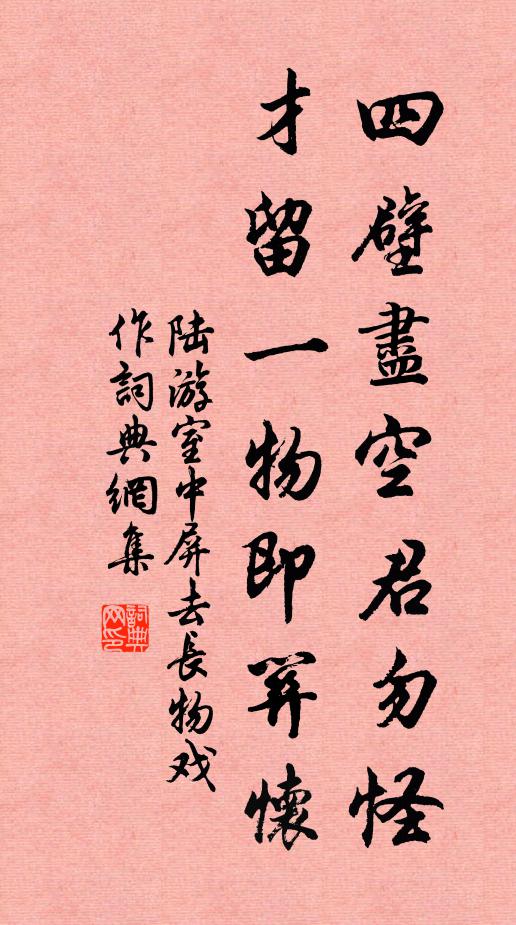 四壁盡空君勿怪
才留一物即關懷
陆游室中屏去長物戏
作詞典網集
詞典網印